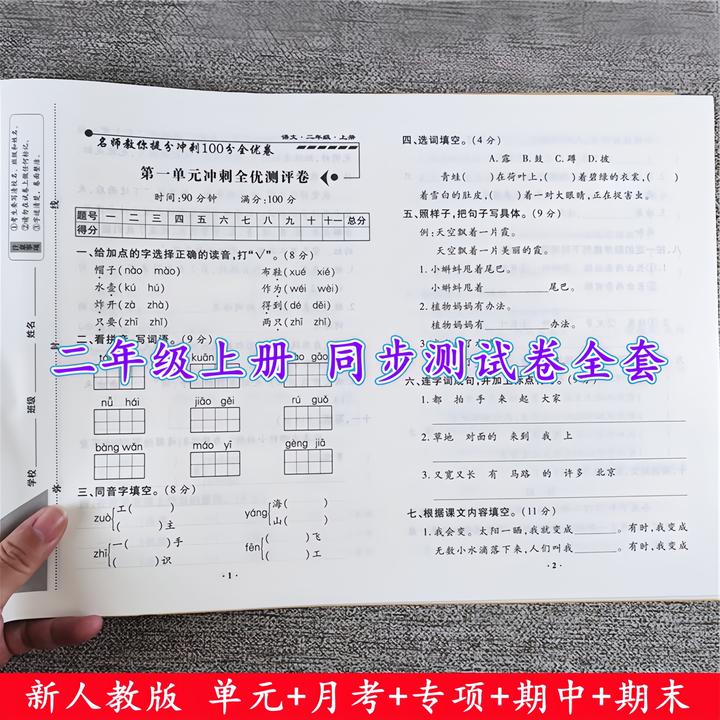 ①考生要写清校名、班级和姓名。
②请勿在试卷上做任何标记。
③字迹清楚，卷面整洁。
注意事项
线
封
弥
姓名
班级
学校
语文·二年级·上册
名师教你提分冲刺100分全优卷
第一单元冲刺全优测评卷
时间:90分钟 满分:100分
题号 一 二 三 四 五 六 七 八 九 十 十一 总分
得分
一、给加点的字选择正确的读音,打“√”。(8分)
帽子(nào mào) 布鞋(xué xié)
水壶(kú hú) 作为(wéi wèi)
炸开(zà zhà) 得到(dé děi)
只要(zhǐ zhī) 两只(zhǐ zhī)
二、看拼音,写词语。(9分)
kuān gǎo
nǚ hái jiāo gěi rú guǒ
bàng wǎn máo yī gèng jiā
三、同音字填空。(8分)
zuò 工( ) ( )主
yáng 海( ) 山( )
zhī 一( )手 ( )识
fēn ( )飞 ( )工
·1·
四、选词填空。(4分)
A.露 B.鼓 C.蹲 D.披
青蛙( )在荷叶上,( )着碧绿的衣裳,( )
着雪白的肚皮,( )着一对大眼睛,正在捉害虫。
五、照样子,把句子写具体。(9分)
例:天空飘着一片霞。
天空飘着一片美丽的霞。
1.小蝌蚪甩着尾巴。
小蝌蚪甩着________尾巴。
2.植物妈妈有办法。
植物妈妈有________办法。
3.
六、连字词成句,并加上标点符号。
1.都 拍 手 来 起 大家
2.草地 对面的 来到 我 上
3.又宽又长 有 马路 的 许多 北京
七、根据课文内容填空。(11分)
1.我会变。太阳一晒,我就变成______。有时,我变成
无数小水滴落下来,人们叫我______。有时,我变成
·2·
二年级上册 同步测试卷全套
新人教版 单元+月考+专项+期中+期末